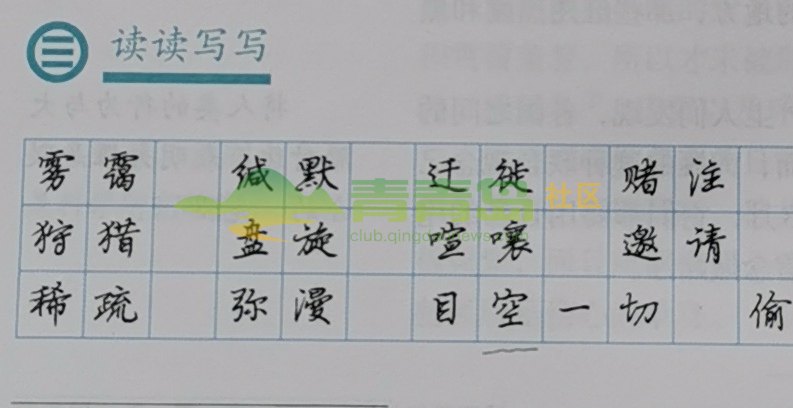 读读写写
雾霭 缄默 迁徙 赌注
狩猎 盘旋 喧嚷 邀请
稀疏 弥漫 目空一切 偷
青青岛社区
club.qingdaonews.com